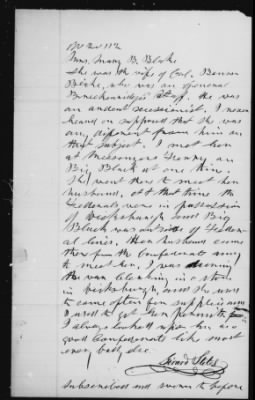 Mrs. Mary B. Blake
She was the wife of Col. Benson
Blake, who was on General
Breckenridge's Staff. She was
an ardent secessionist. I never
heard or supposed that she was
any different from him on
that subject. I met her
at Messengers Ferry, on
Big Black at one time.
She went there to meet her
husband, at that time the
Federals were in possession
of Vicksburgh and Big
Black was outside of Federal
lines. Her husband came
there from the Confederate army
to meet her. I was during
the war clerking in a store
in Vicksburgh, and she used
to come often for supplies and
I used to get her permits
I always looked upon her as a
good Confederate like most
every body else.
Subscribed and sworn to before